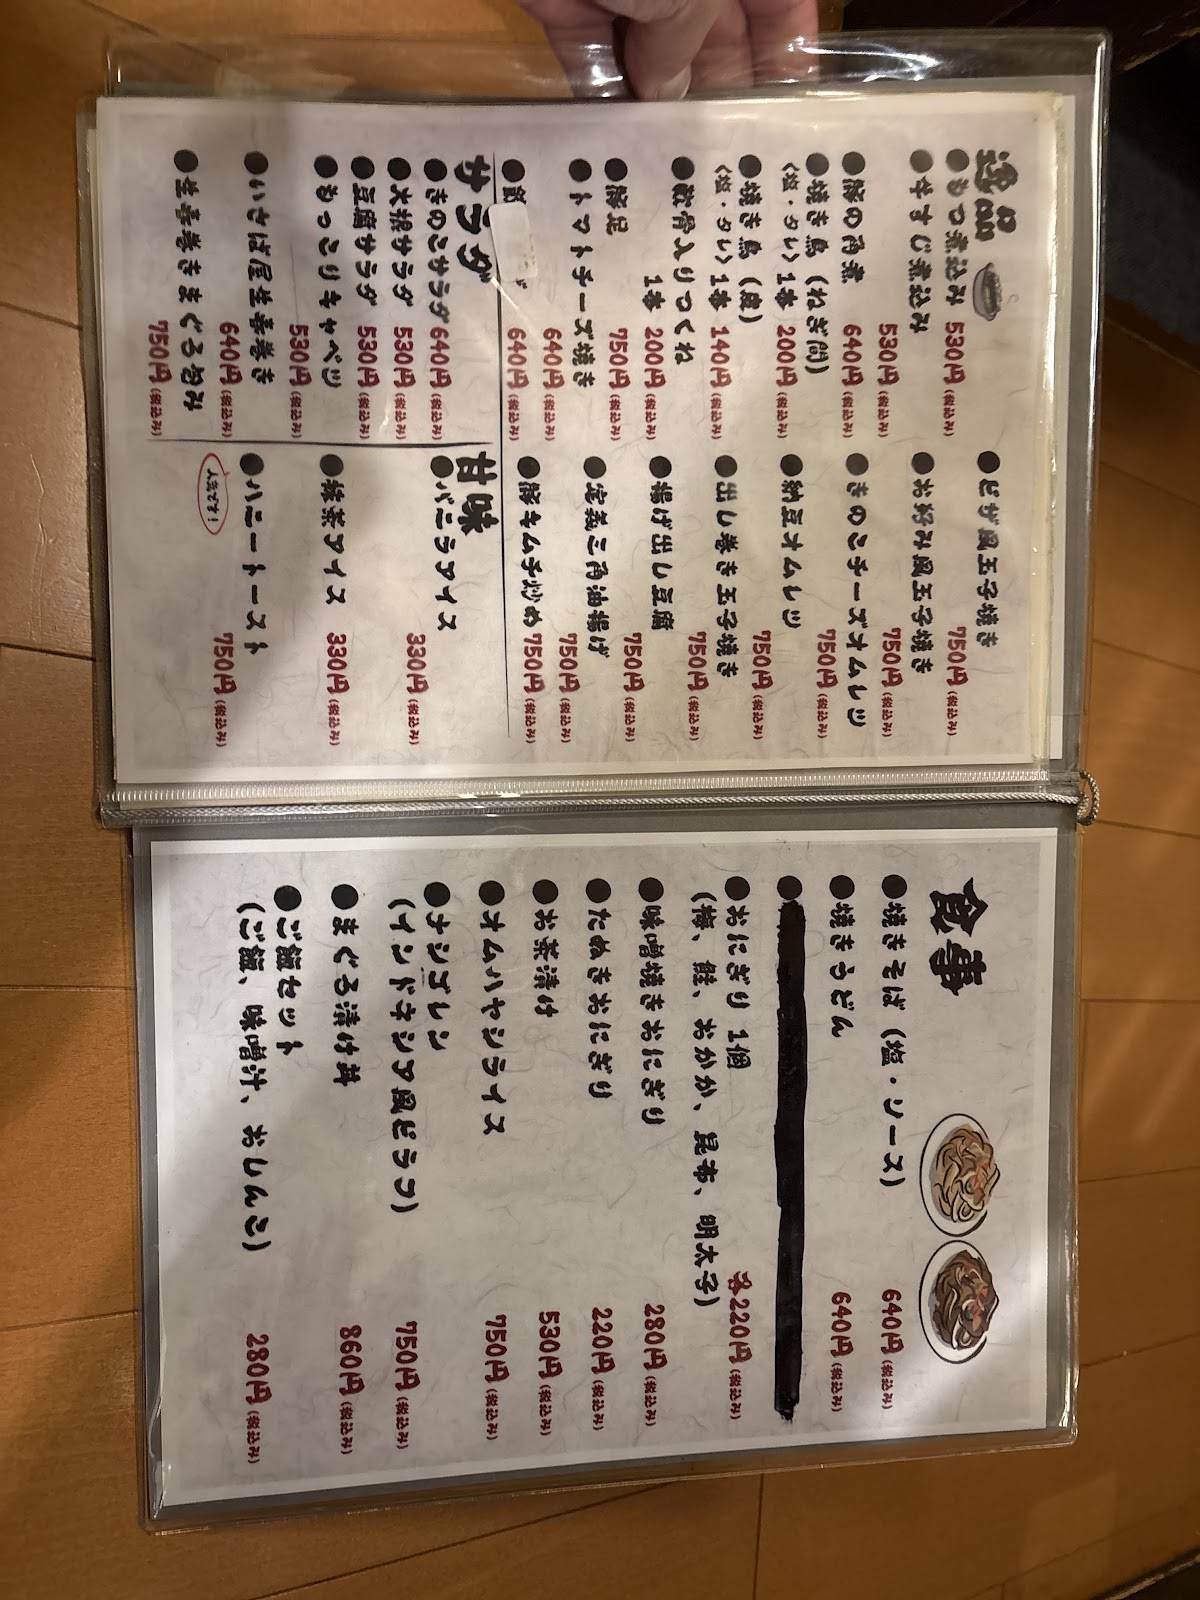 逸品
●もつ煮込み 530円(税込み)
●牛すじ煮込み
530円(税込み)
●豚の角煮 640円(税込み)
●焼き鳥(ねぎ間)
〈塩・タレ〉1本 200円(税込み)
●焼き鳥(皮)
〈塩・タレ〉1本 140円(税込み)
●軟骨入りつくね
1本 200円(税込み)
●豚足 750円(税込み)
●トマトチーズ焼き
640円(税込み)
640円(税込み)
●ピザ風玉子焼き
750円(税込み)
●お好み風玉子焼き
750円(税込み)
●きのこチーズオムレツ
750円(税込み)
●納豆オムレツ
750円(税込み)
●出し巻き玉子焼き
750円(税込み)
●揚げ出し豆腐
750円(税込み)
●定義三角油揚げ
750円(税込み)
●豚キムチ炒め 750円(税込み)
サラダ
●きのこサラダ 640円(税込み)
●大根サラダ 530円(税込み)
●豆腐サラダ 530円(税込み)
●もっこりキャベツ
530円(税込み)
●いさば屋生春巻き
640円(税込み)
●生春巻きまぐろ包み
750円(税込み)
甘味
●バニラアイス
330円(税込み)
●抹茶アイス
330円(税込み)
●ハニートースト
750円(税込み)
人気です!
食事
●焼きそば(塩・ソース) 640円(税込み)
●焼きうどん 640円(税込み)
●おにぎり 1個 各220円(税込み)
(梅、鮭、おかか、昆布、明太子)
●味噌焼きおにぎり 280円(税込み)
●たぬきおにぎり 220円(税込み)
●お茶漬け 530円(税込み)
●オムハヤシライス 750円(税込み)
●ナシゴレン
(インドネシア風ピラフ) 750円(税込み)
●まぐろ漬け丼 860円(税込み)
●ご飯セット
(ご飯、味噌汁、おしんこ) 280円(税込み)